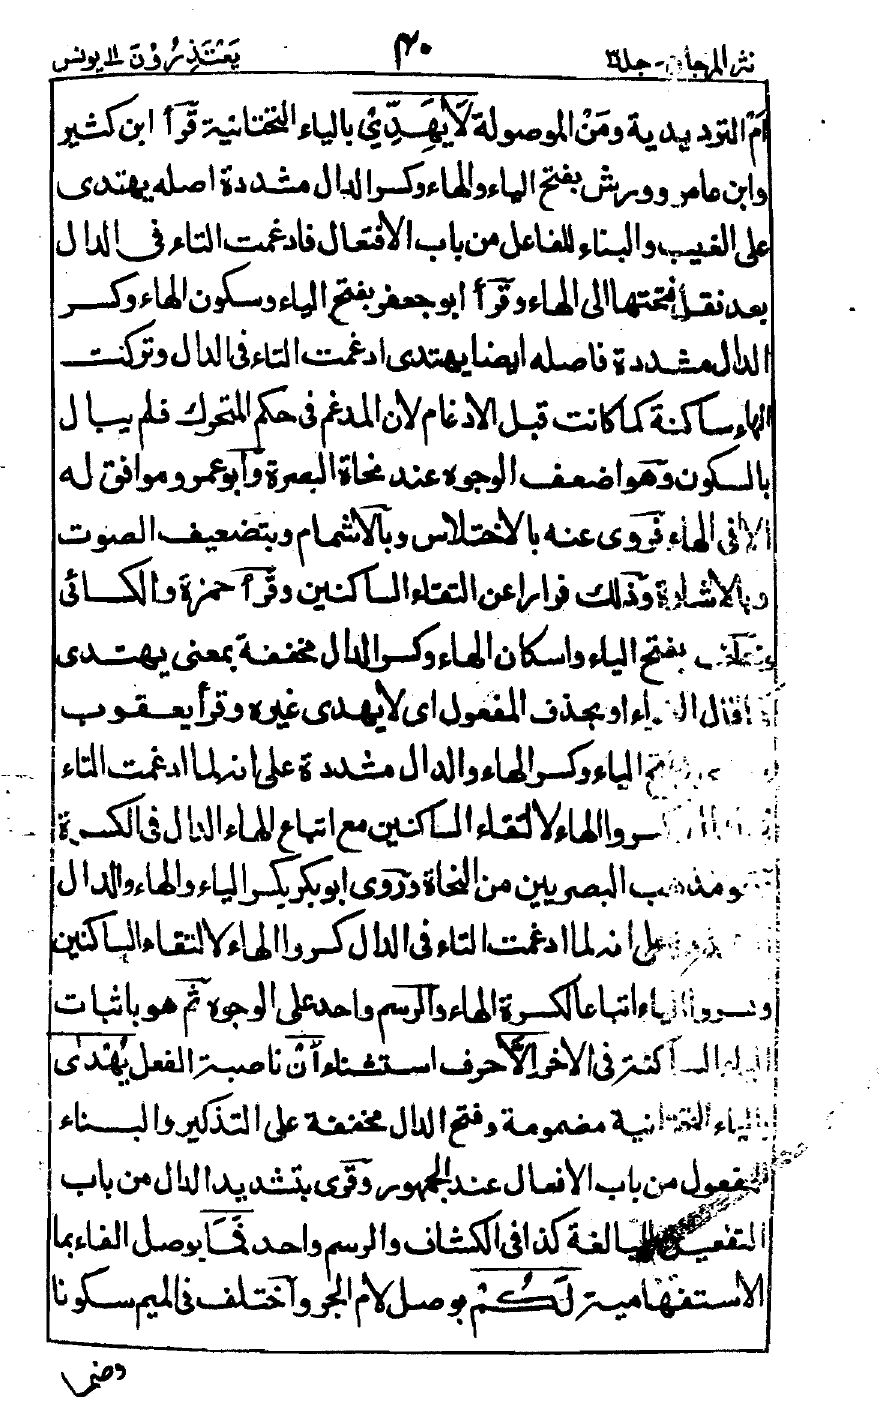 نثر المرجان - جلد ٣
٤٠
يَعْتَذِرُوْنَ ١١ يونس
اَمْ الترديدية ومَنْ الموصولة لَّا يَهِدِّيْ بالياء التحتانية قرأ ابن كثير
وابن عامر وورش بفتح الياء والهاء وكسر الدال مشددة اصله يهتدى
على الغيب والبناء للفاعل من باب الافتعال فادغمت التاء فى الدال
بعد نقل فتحتها الى الهاء وقرأ ابو جعفر بفتح الياء وسكون الهاء وكسر
الدال مشددة فاصله ايضا يهتدى ادغمت التاء فى الدال وتركت
الهاء ساكنة كما كانت قبل الادغام لان المدغم فى حكم المتحرك فلم يبال
بالسكون وهو اضعف الوجوه عند نحاة البصرة وابو عمرو موافق له
الا فى الهاء فروى عنه بالاختلاس وبالاشمام وبتضعيف الصوت
وبالاشارة وذلك فرارا عن التقاء الساكنين وقرأ حمزة والكسائى
بفتح الياء واسكان الهاء وكسر الدال مخففة بمعنى يهتدى
او بحذف المفعول اى لا يهدى غيره وقرأ يعقوب
الياء وكسر الهاء والدال مشددة على انه لما ادغمت التاء
كسروا الهاء لالتقاء الساكنين مع اتباع الهاء الدال فى الكسرة
ومذهب البصريين من النحاة وروى ابو بكر بكسر الياء والهاء والدال
على انه لما ادغمت التاء فى الدال كسروا الهاء لالتقاء الساكنين
وكسروا الياء اتباعا لكسرة الهاء والرسم واحد على الوجوه ثم هو باثبات
الياء الساكنة فى الاخر اِلَّا حرف استثناء اَنْ ناصبة الفعل يُهْدٰى
بالياء التحتانية مضمومة وفتح الدال مخففة على التذكير والبناء
للمفعول من باب الافعال عند الجمهور وقرى بتشديد الدال من باب
التفعيل للمبالغة كذا فى الكشاف والرسم واحد فَمَا بوصل الفاء بما
الاستفهامية لَكُمْ بوصل لام الجر واختلف فى الميم سكونا
وضما